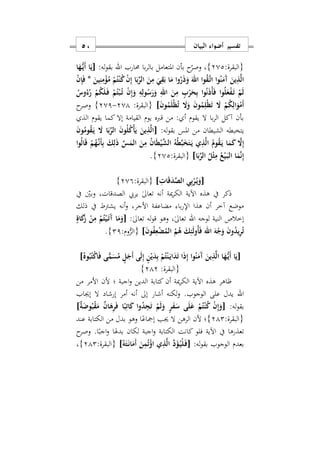 تفسير أضواء البيان
٥٠
{البقرة:٢٧٥}، وصرّح بأن المتعامل بالربا محارب الله بقوله: [يَا أَيُّهَا
الَّذِينَ آَمَنُوا اتَّقُوا اللهَ وَذَرُوا مَا بَقِيَ مِنَ الرِّبَا إِنْ كُنْتُمْ مُؤْمِنِينَ * فَإِنْ
لَمْ تَفْعَلُوا فَأْذَنُوا بِحَرْبٍ مِنَ اللهِ وَرَسُولِهِ وَإِنْ تُبْتُمْ فَلَكُمْ رُءُوسُ
أَمْوَالِكُمْ لَا تَظْلِمُونَ وَلَا تُظْلَمُونَ] {البقرة: ٢٧٨-٢٧٩} وصرح
بأن آكل الربا لا يقوم أي: من قبره يوم القيامة إلا كما يقوم الذي
يتخبطه الشيطان من المس بقوله: [الَّذِينَ يَأْكُلُونَ الرِّبَا لَا يَقُومُونَ
إِلَّا كَمَا يَقُومُ الَّذِي يَتَخَبَّطُهُ الشَّيْطَانُ مِنَ الْمَسِّ ذَلِكَ بِأَنَّهُمْ قَالُوا
إِنَّمَا الْبَيْعُ مِثْلُ الرِّبَا] {البقرة:٢٧٥}.
[وَيُرْبِي الصَّدَقَاتِ] {البقرة:٢٧٦}
ذكر في هذه الآية الكريمة أنه تعالى يربي الصدقات، وبيّن في
موضع آخر أن هذا الإرباء مضاعفة الأجر، وأنه يشترط في ذلك
إخلاص النية لوجه الله تعالى، وهو قوله تعالى: [وَمَا آَتَيْتُمْ مِنْ زَكَاةٍ
تُرِيدُونَ وَجْهَ اللهِ فَأُولَئِكَ هُمُ الْمُضْعِفُونَ] {الرُّوم:٣٩}.
[يَا أَيُّهَا الَّذِينَ آَمَنُوا إِذَا تَدَايَنْتُمْ بِدَيْنٍ إِلَى أَجَلٍ مُسَمًّى فَاكْتُبُوهُ]
{البقرة: ٢٨٢}
ظاهر هذه الآية الكريمة أن كتابة الدين واجبة ؛ لأن الأمر من
الله يدل على الوجوب. ولكنه أشار إلى أنه أمر إرشاد لا إيجاب
بقوله: [وَإِنْ كُنْتُمْ عَلَى سَفَرٍ وَلَمْ تَجِدُوا كَاتِبًا فَرِهَانٌ مَقْبُوضَةٌ]
{البقرة:٢٨٣}؛ لأن الرهن لا يجب إجماعًا وهو بدل من الكتابة عند
تعذرها في الآية فلو كانت الكتابة واجبة لكان بدلها واجبًا. وصرح
بعدم الوجوب بقوله: [فَلْيُؤَدِّ الَّذِي اؤْتُمِنَ أَمَانَتَهُ] {البقرة:٢٨٣}،